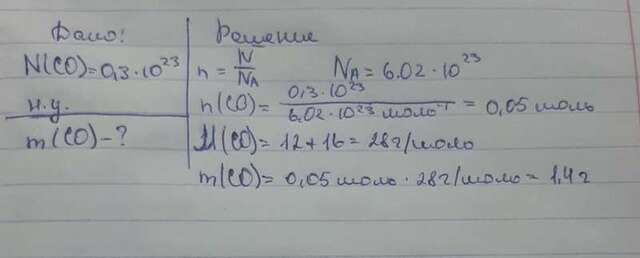 Дано:
N(CO)=0,3·10²³
н.у.
m(CO)-?
Решение
n = N/Nᴀ Nᴀ = 6.02·10²³
n(CO) = 0,3·10²³/6,02·10²³ моль⁻¹ = 0,05 моль
M(CO) = 12+16 = 28г/моль
m(CO) = 0,05 моль · 28г/моль = 1,4г